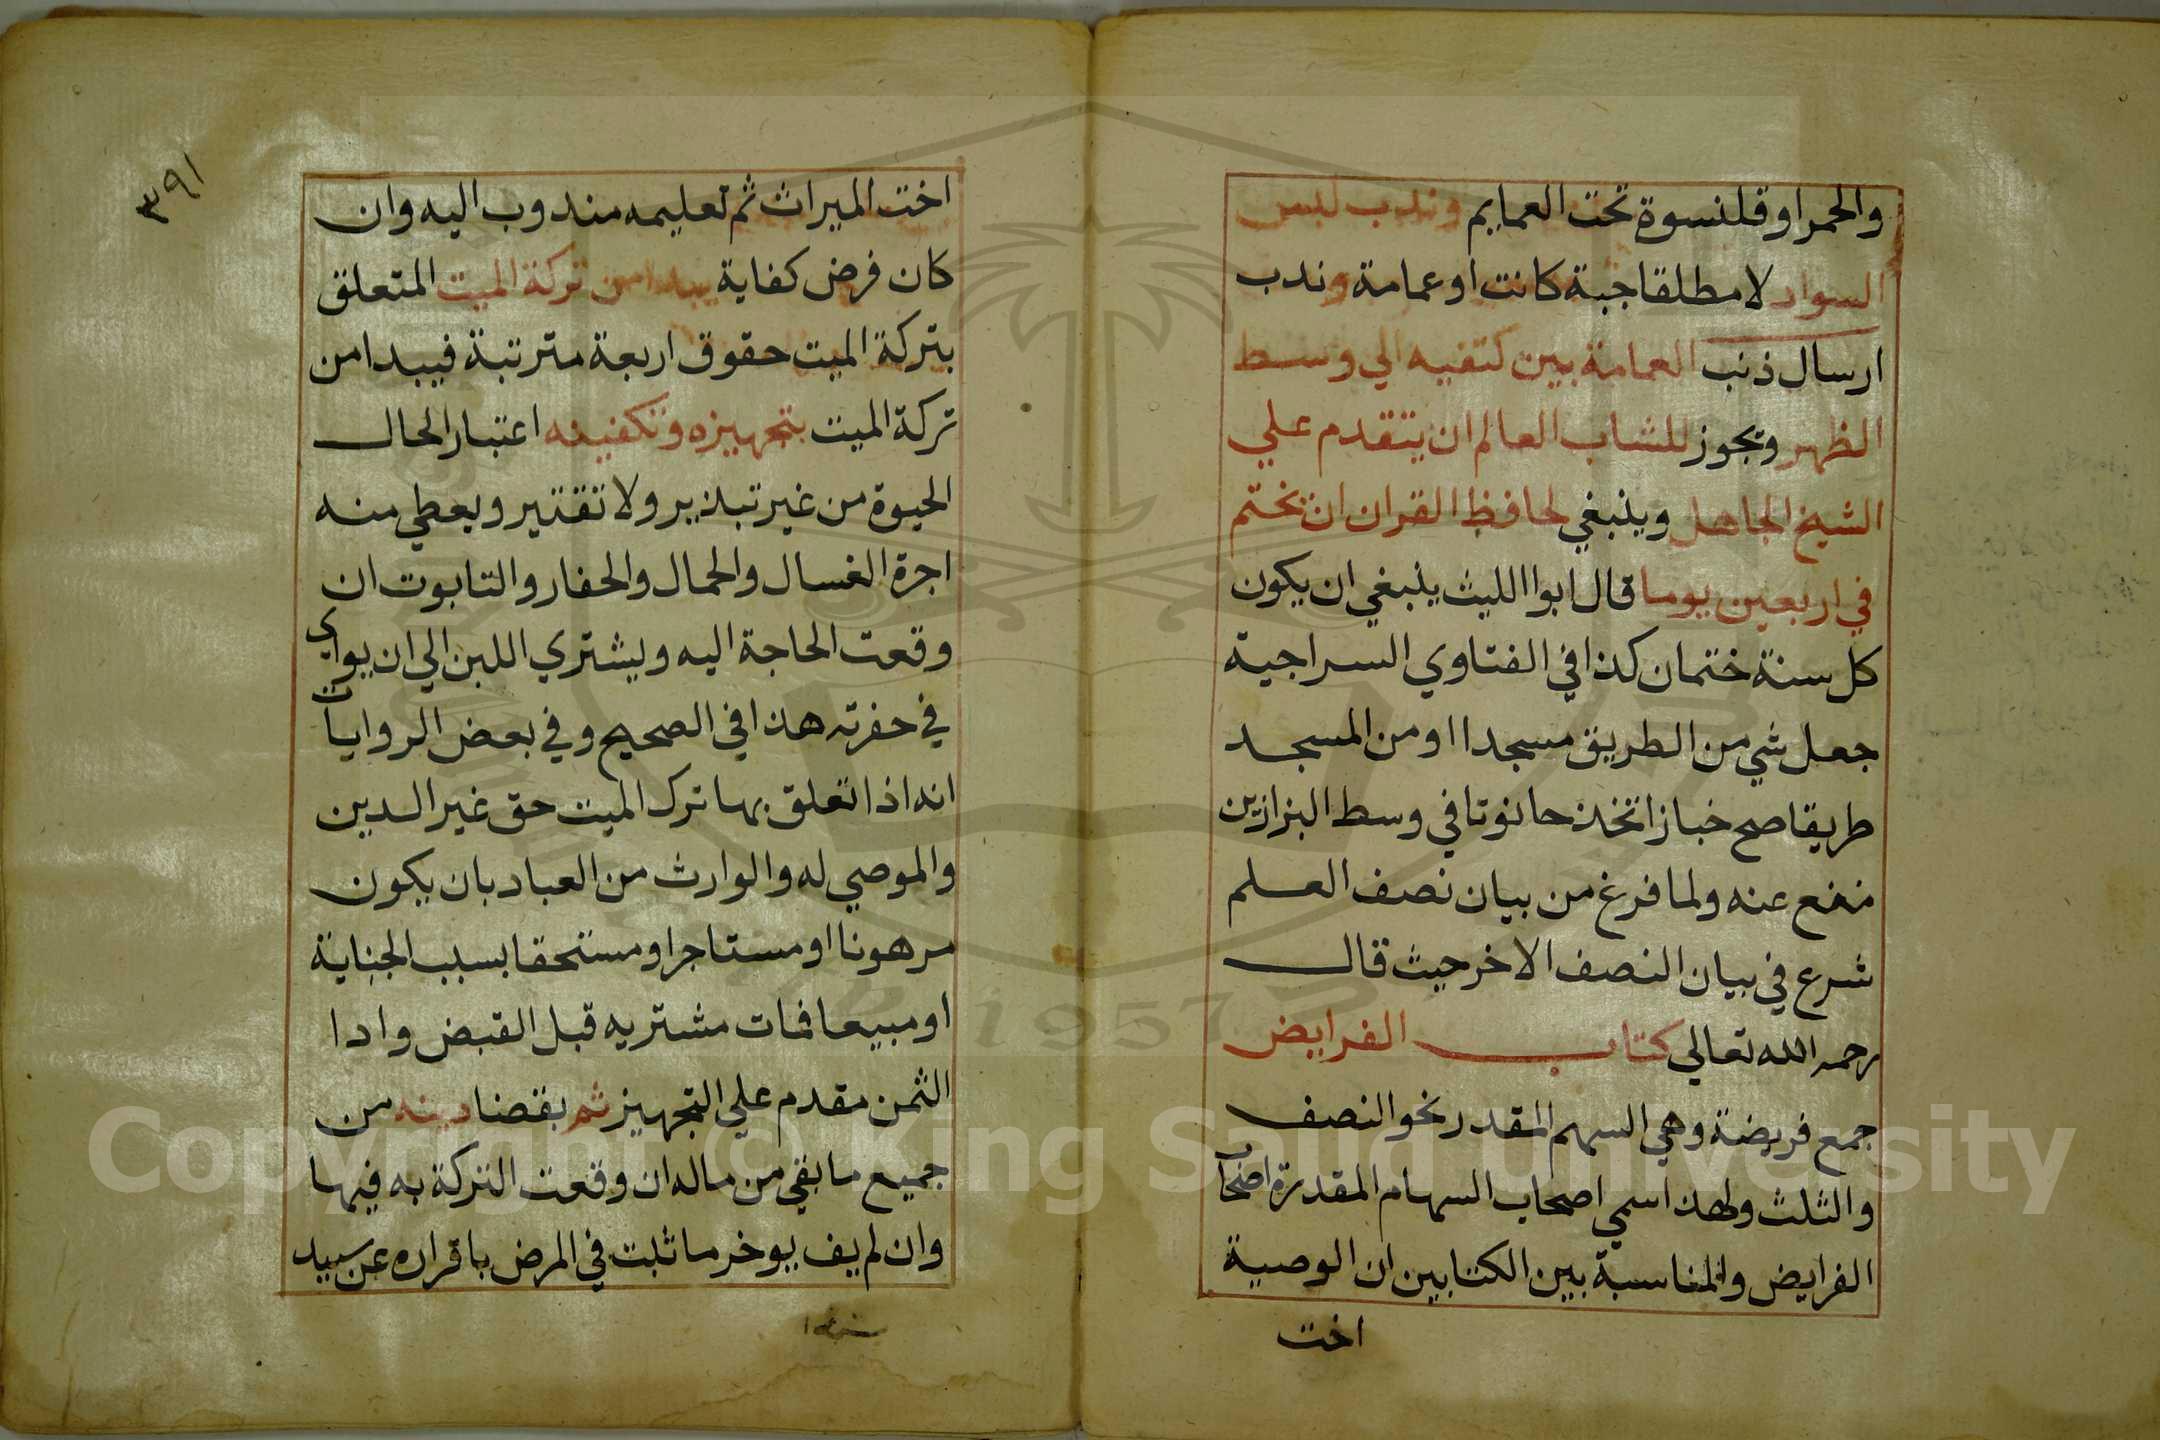 والحمرا وقلنسوة تحت العمايم وندب لبس
السواد لا مطلقا جبة كانت او عمامة وندب
ارسال ذنب العمامة بين كتفيه الي وسط
الظهر ويجوز للشاب العالم ان يتقدم علي
الشيخ الجاهل وينبغي لحافظ القران ان يختم
في اربعين يوما قال ابوا الليث ينبغي ان يكون
كل سنة ختمان كذا في الفتاوي السراجية
جعل شي من الطريق مسجدا او من المسجد
طريقا صح خباز اتخذ حانوتا في وسط البزازين
منع عنه ولما فرغ من بيان نصف العلم
شرع في بيان النصف الاخر حيث قال
رحمه الله تعالي كتاب الفرايض
جمع فريضة وهي السهم المقدر نحو النصف
والثلث ولهذا سمي اصحاب السهام المقدرة اصحاب
الفرايض والمناسبة بين الكتابين ان الوصية
اخت
٣٩١
اخت الميراث ثم تعليمه مندوب اليه وان
كان فرض كفاية يبدا من تركة الميت المتعلق
بتركة الميت حقوق اربعة مترتبة فيبدا من
تركة الميت بتجهيزه وتكفينه اعتبارا لحال
الحيوة من غير تبذير ولا تقتير ويعطي منه
اجرة الغسال والحمال والحفار والتابوت ان
وقعت الحاجة اليه ويشتري اللبن الي ان يواري
في حفرته هذا في الصحيح وفي بعض الروايات
انه اذا تعلق بها ترك الميت حق غير الدين
والموصي له والوارث من العباد بان يكون
مرهونا او مستاجرا ومستحقا بسبب الجناية
او مبيعا فمات مشتريه قبل القبض وادا
الثمن مقدم علي التجهيز ثم بقضا دينه من
جميع ما بقي من ماله ان وقعت التركة به فيها
وان لم يف يوخر ما ثبت في المرض باقراره عن سبيد
Copyright © King Saud University
1957